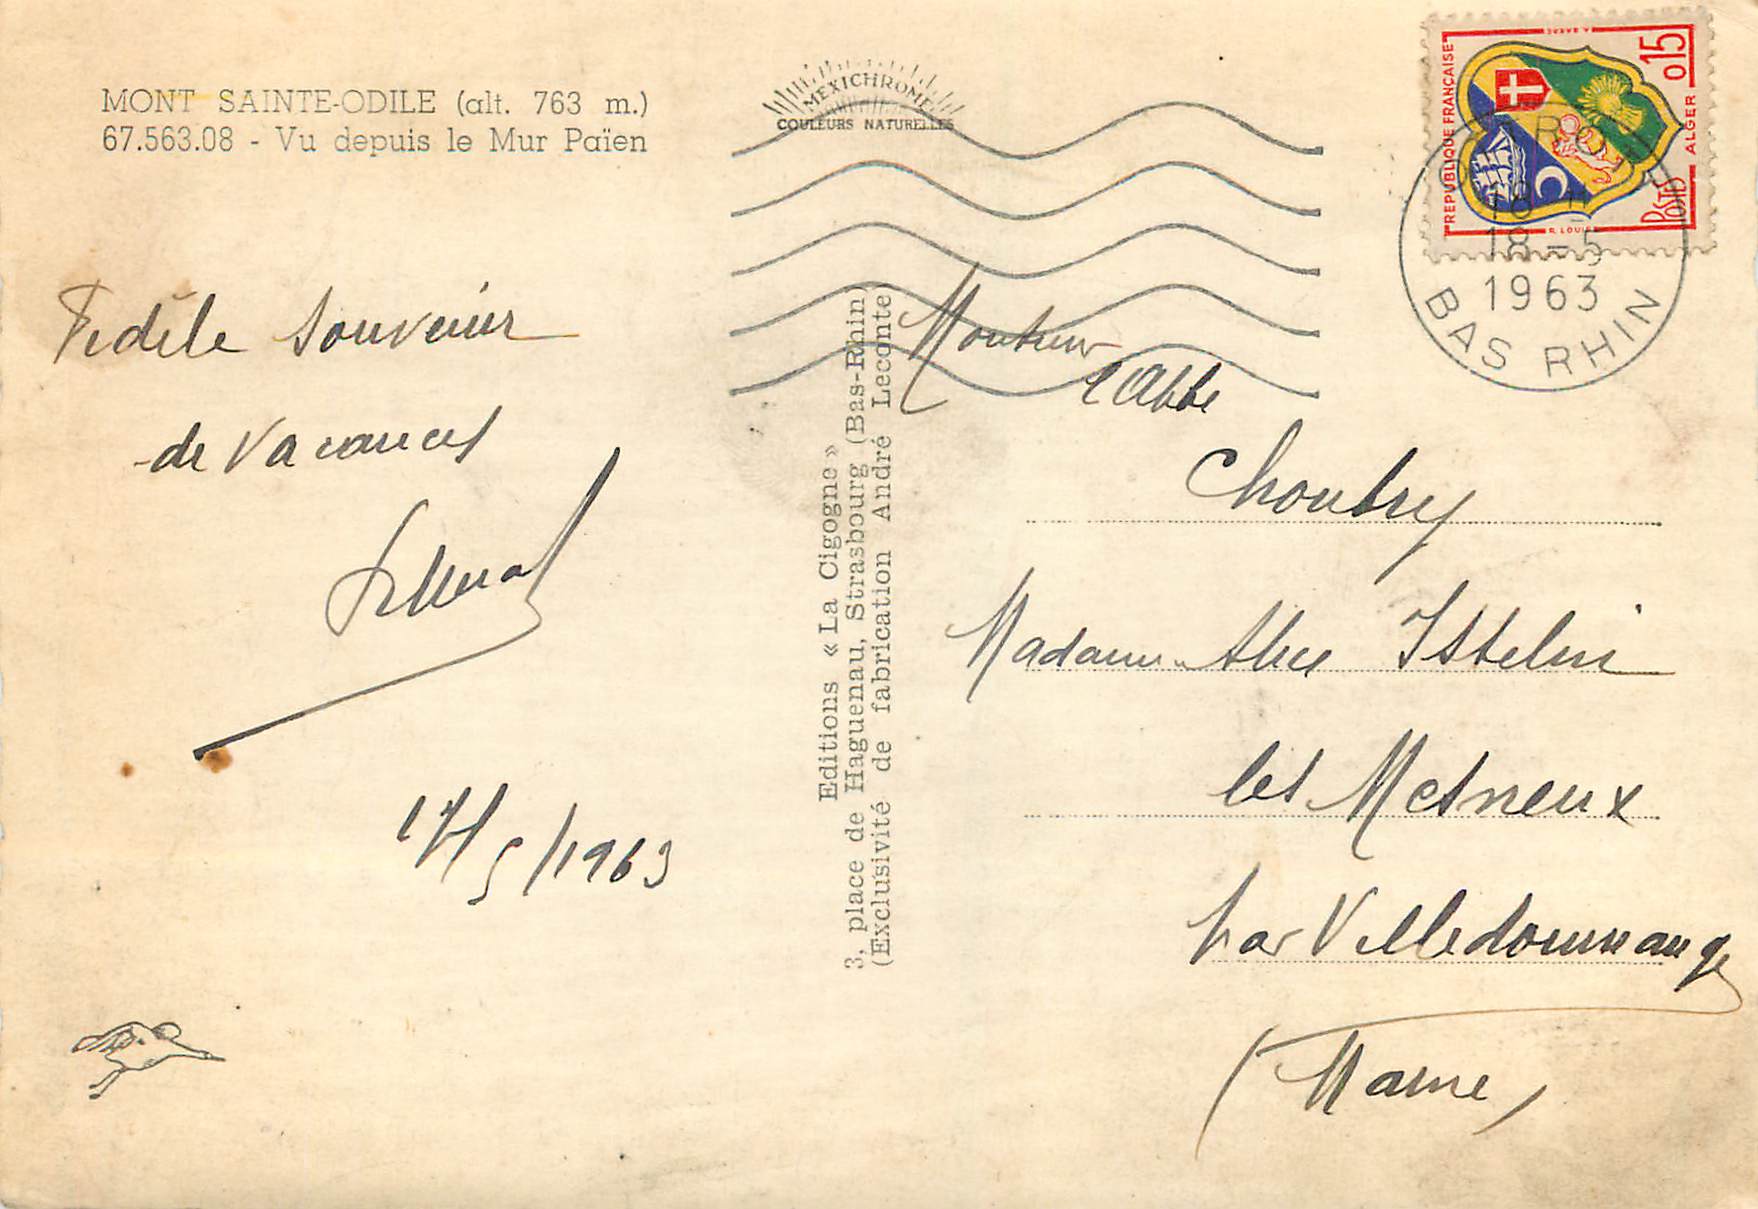 MONT SAINTE-ODILE (alt. 763 m.)
67.563.08 - Vu depuis le Mur Païen
MEXICHROME
COULEURS NATURELLES
REPUBLIQUE FRANÇAISE
0,15
ALGER
POSTES
18 H
18 - 5
1963
BAS RHIN
Fidèle Souvenir
de Vacances
17/5/1963
Editions « La Cigogne »
3, place de Haguenau, Strasbourg (Bas-Rhin)
(Exclusivité de fabrication André Leconte)
Monsieur
l'Abbé
Choubry
Madame Alice Isselin
les Mesneux
par Villedommange
(Marne)